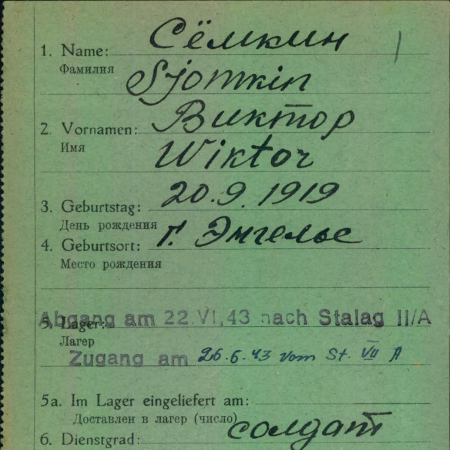 Сёмкин
1. Name:
Фамилия
Sjomkin
2. Vornamen: Виктор
Имя
Wiktor
3. Geburtstag: 20.9.1919
День рождения
4. Geburtsort: г. Энгельс
Место рождения
Abgang am 22.VI.43 nach Stalag II/A
5. Lager:
Лагер
Zugang am 26.6.43 vom St. VII A
5a. Im Lager eingeliefert am:
Доставлен в лагер (число)
6. Dienstgrad: солдат